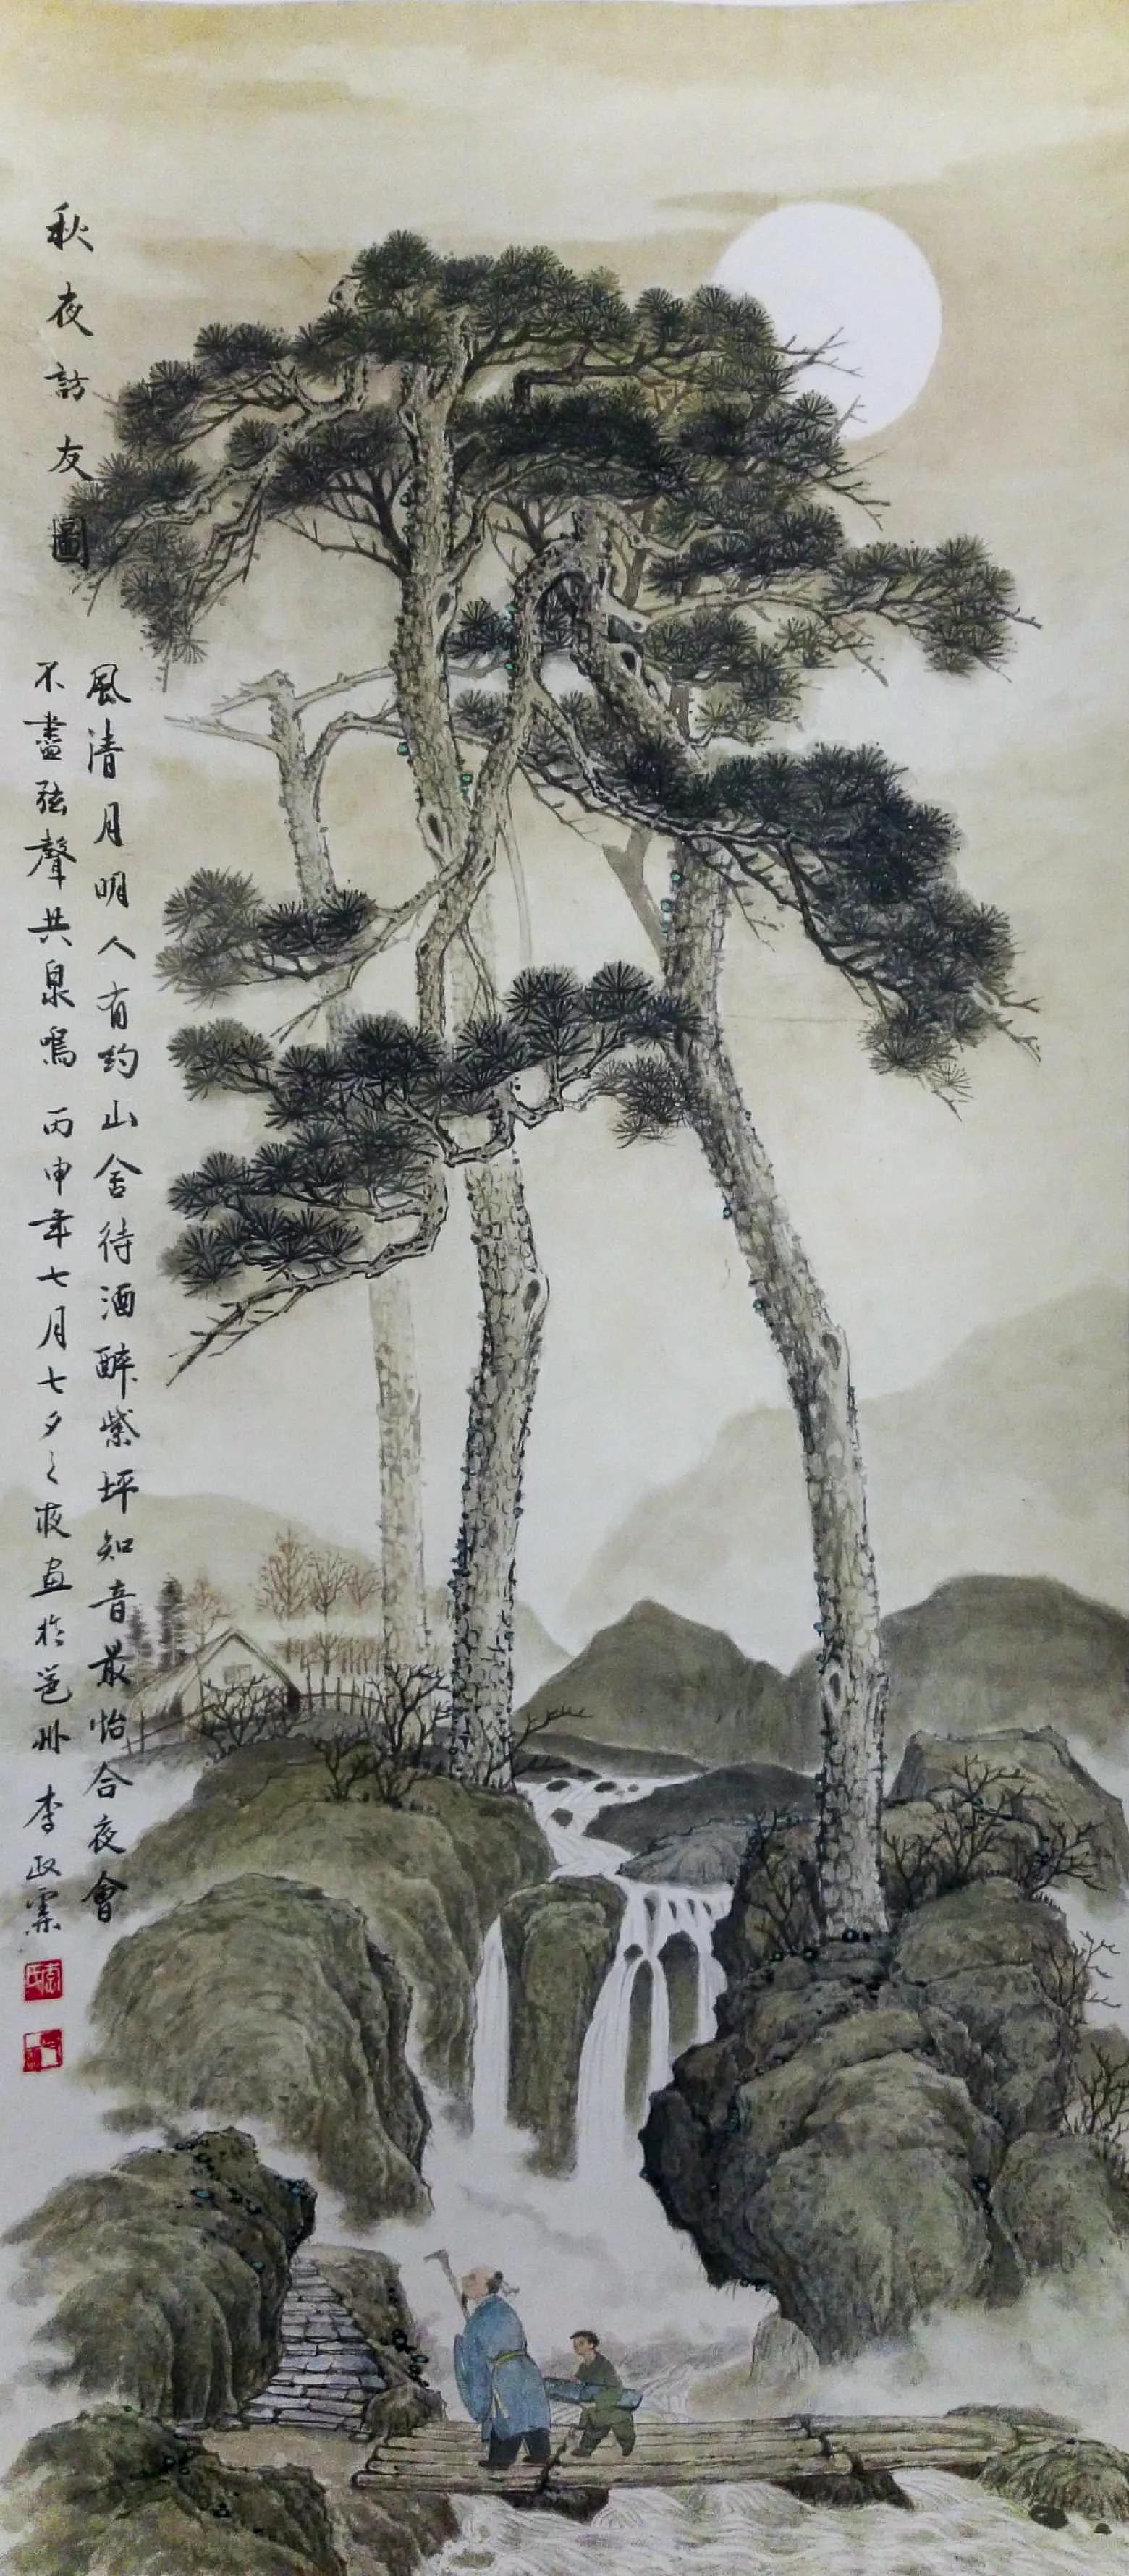 秋夜訪友圖
風清月明人有約山舍待酒醉紫坪知音最怡合夜會
不盡弦聲共泉鳴 丙申年七月七夕之夜畫於邕州 李政霖